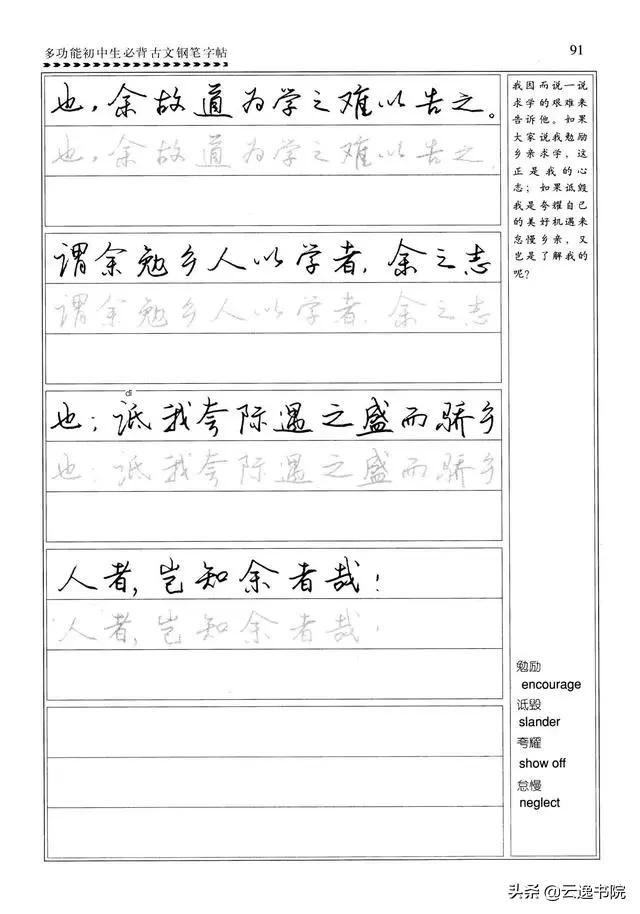 多功能初中生必背古文钢笔字帖
91
也,余故道为学之难以告之。
也,余故道为学之难以告之。
谓余勉乡人以学者,余之志
谓余勉乡人以学者,余之志
dǐ
也;诋我夸际遇之盛而骄乡
也;诋我夸际遇之盛而骄乡
人者,岂知余者哉!
人者,岂知余者哉!
我因而说一说
求学的艰难来
告诉他。如果
大家说我勉励
乡亲求学,这
正是我的心
志;如果诋毁
我是夸耀自己
的美好机遇来
怠慢乡亲,又
岂是了解我的
呢?
勉励
encourage
诋毁
slander
夸耀
show off
怠慢
neglect
头条 @云逸书院